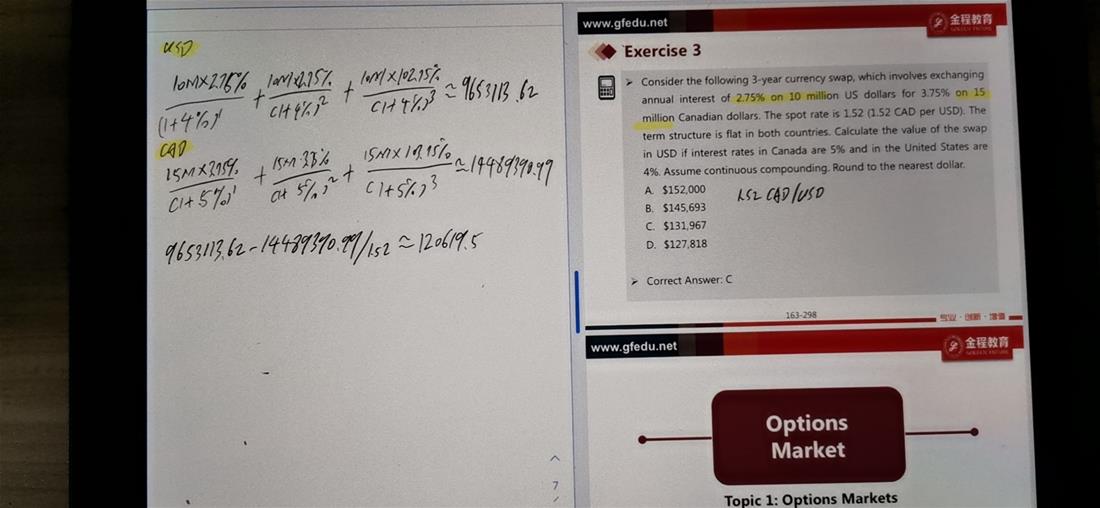 USD
10M×2.75%/(1+4%)¹ + 10M×2.75%/(1+4%)² + 10M×102.75%/(1+4%)³ ≈ 9653113.62
CAD
15M×3.75%/(1+5%)¹ + 15M·3.75%/(1+5%)² + 15M×103.75%/(1+5%)³ ≈ 14489390.99
9653113.62 - 14489390.99/1.52 ≈ 120619.5
7
www.gfedu.net
金程教育
GOLDEN FUTURE
Exercise 3
➢ Consider the following 3-year currency swap, which involves exchanging
annual interest of 2.75% on 10 million US dollars for 3.75% on 15
million Canadian dollars. The spot rate is 1.52 (1.52 CAD per USD). The
term structure is flat in both countries. Calculate the value of the swap
in USD if interest rates in Canada are 5% and in the United States are
4%. Assume continuous compounding. Round to the nearest dollar.
A. $152,000
1.52 CAD/USD
B. $145,693
C. $131,967
D. $127,818
➢ Correct Answer: C
163-298
专业·创新·增值
www.gfedu.net
金程教育
GOLDEN FUTURE
Options
Market
Topic 1: Options Markets